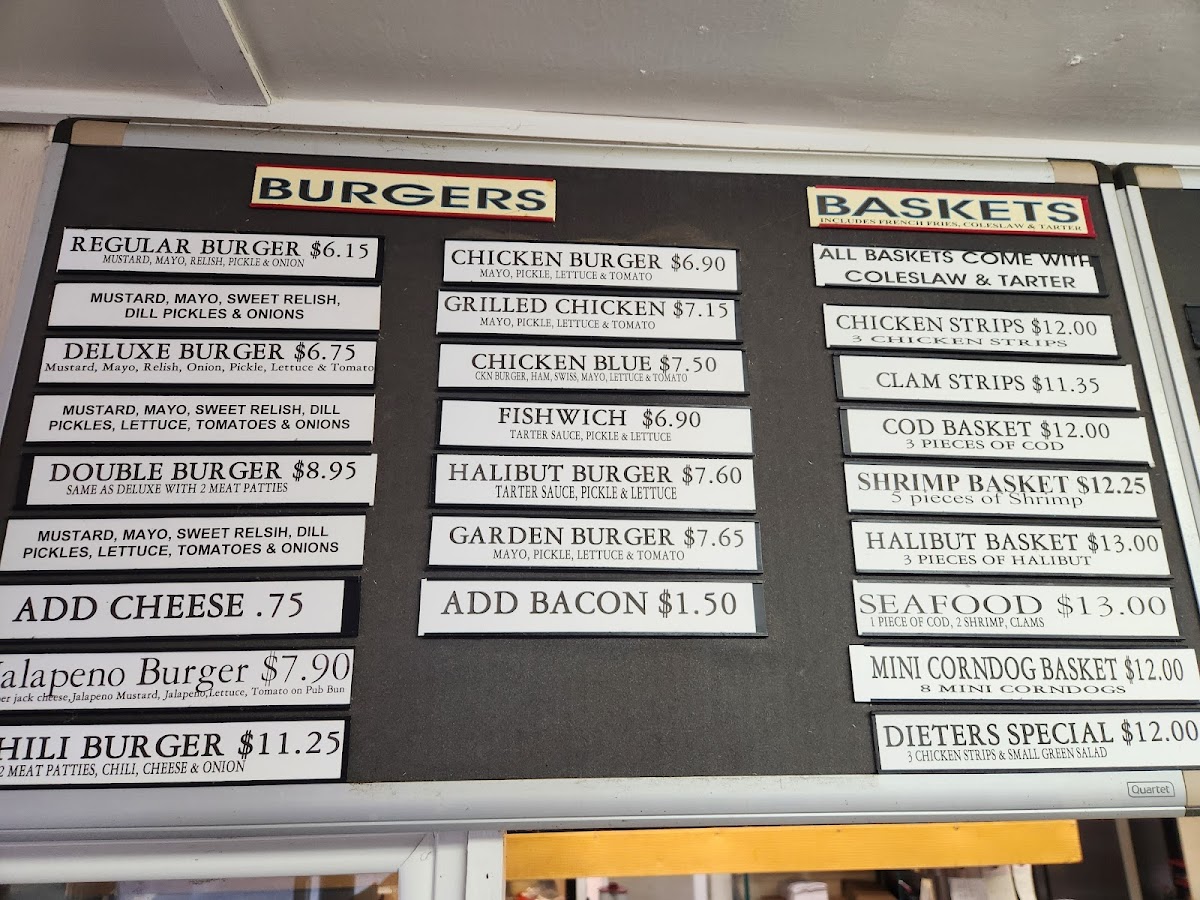 BURGERS
REGULAR BURGER $6.15
MUSTARD, MAYO, RELISH, PICKLE & ONION
MUSTARD, MAYO, SWEET RELISH,
DILL PICKLES & ONIONS
DELUXE BURGER $6.75
Mustard, Mayo, Relish, Onion, Pickle, Lettuce & Tomato
MUSTARD, MAYO, SWEET RELISH, DILL
PICKLES, LETTUCE, TOMATOES & ONIONS
DOUBLE BURGER $8.95
SAME AS DELUXE WITH 2 MEAT PATTIES
MUSTARD, MAYO, SWEET RELSIH, DILL
PICKLES, LETTUCE, TOMATOES & ONIONS
ADD CHEESE .75
Jalapeno Burger $7.90
er jack cheese, Jalapeno Mustard, Jalapeno, Lettuce, Tomato on Pub Bun
HILI BURGER $11.25
2 MEAT PATTIES, CHILI, CHEESE & ONION
CHICKEN BURGER $6.90
MAYO, PICKLE, LETTUCE & TOMATO
GRILLED CHICKEN $7.15
MAYO, PICKLE, LETTUCE & TOMATO
CHICKEN BLUE $7.50
CKN BURGER, HAM, SWISS, MAYO, LETTUCE & TOMATO
FISHWICH $6.90
TARTER SAUCE, PICKLE & LETTUCE
HALIBUT BURGER $7.60
TARTER SAUCE, PICKLE & LETTUCE
GARDEN BURGER $7.65
MAYO, PICKLE, LETTUCE & TOMATO
ADD BACON $1.50
BASKETS
INCLUDES FRENCH FRIES, COLESLAW & TARTER
ALL BASKETS COME WITH
COLESLAW & TARTER
CHICKEN STRIPS $12.00
3 CHICKEN STRIPS
CLAM STRIPS $11.35
COD BASKET $12.00
3 PIECES OF COD
SHRIMP BASKET $12.25
5 pieces of Shrimp
HALIBUT BASKET $13.00
3 PIECES OF HALIBUT
SEAFOOD $13.00
1 PIECE OF COD, 2 SHRIMP, CLAMS
MINI CORNDOG BASKET $12.00
8 MINI CORNDOGS
DIETERS SPECIAL $12.00
3 CHICKEN STRIPS & SMALL GREEN SALAD
Quartet